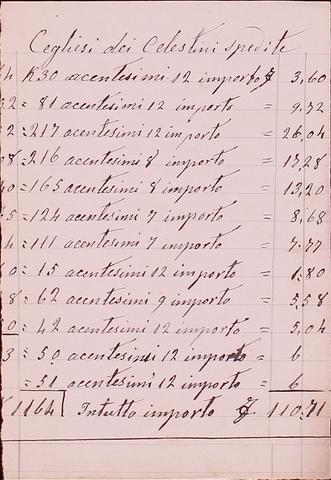 Cegliesi dei Celestini spedite
4 K 30 acentesimi 12 importo £ 3,60
32 = 81 acentesimi 12 importo = 9,72
2 = 217 acentesimi 12 importo = 26,04
08 = 216 acentesimi 8 importo = 17,28
0 = 165 acentesimi 8 importo = 13,20
5 = 124 acentesimi 7 importo = 8,68
4 = 111 acentesimi 7 importo = 7.77
0 = 15 acentesimi 12 importo = 1.80
8 = 62 acentesimi 9 importo = 5,58
0 = 42 acentesimi 12 importo = 5,04
3 = 50 acentesimi 12 importo = 6
= 51 acentesimi 12 importo = 6
1164 Intutto importo £ 110.71